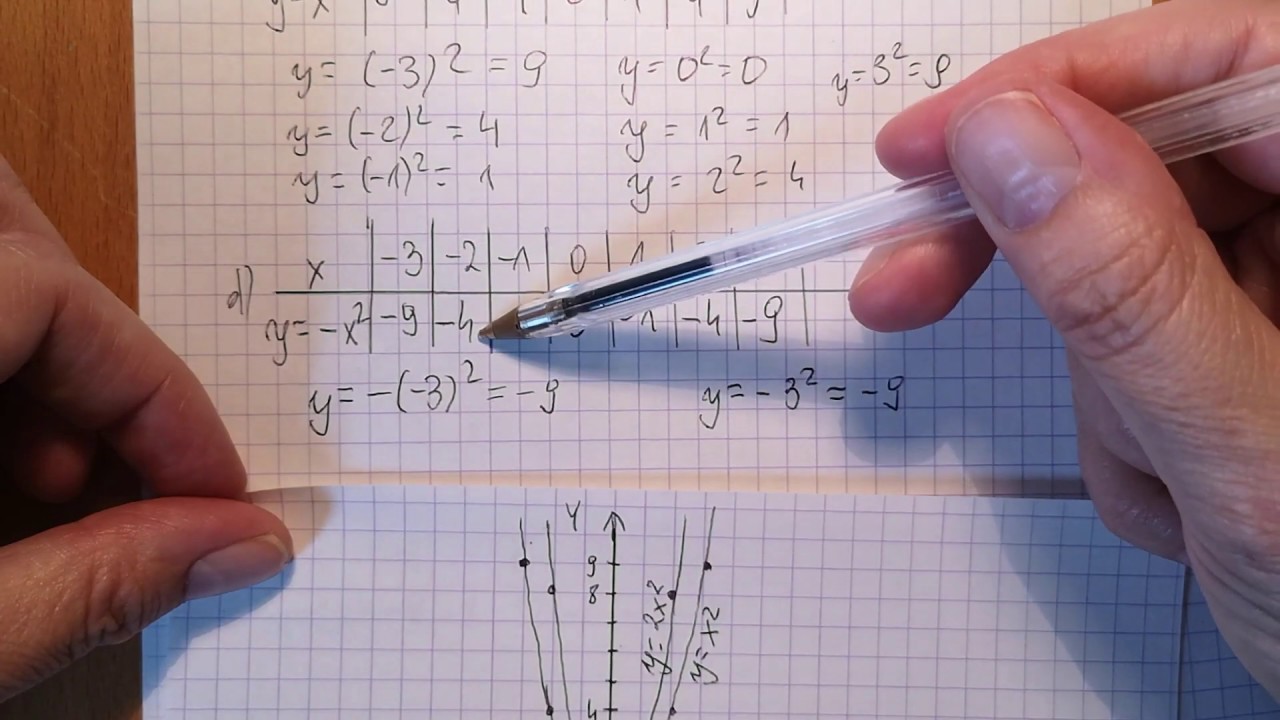 y = (-3)² = 9 y = 0² = 0 y = 3² = 9
y = (-2)² = 4 y = 1² = 1
y = (-1)² = 1 y = 2² = 4
d) x -3 -2 -1 0 1
y = -x² -9 -4 -1 -4 -9
y = -(-3)² = -9 y = -3² = -9
Y
9
8
y = 2x² y = x²
4